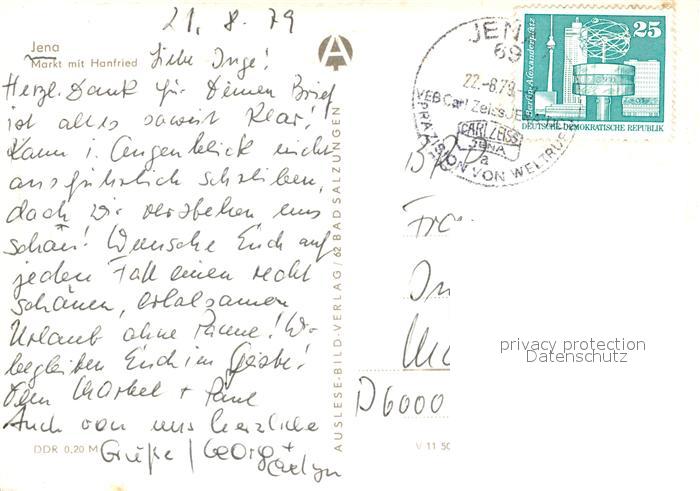 21.8.79
Jena
Markt mit Hanfried
Liebe Inge!
Herzl. Dank für Deinen Brief
ist alles soweit klar!
Kann i. Augenblick nicht
ausführlich schreiben,
doch wir verstehen uns
schon! Wünsche Euch auf
jeden Fall einen recht
schönen, erholsamen
Urlaub ohne Panne! Wir
begleiten Euch im Geiste!
Auch von uns herzliche
Grüße / Georg +
DDR 0,20 M
AUSLESE-BILD-VERLAG / 62 BAD SALZUNGEN
V 11 50
JENA
69
22.-8.79
VEB Carl Zeiss JENA
CARL ZEISS
JENA
a
PRÄZISION VON WELTRUF
25
Berlin-Alexanderplatz
DEUTSCHE DEMOKRATISCHE REPUBLIK
BRD
D6000
privacy protection
Datenschutz